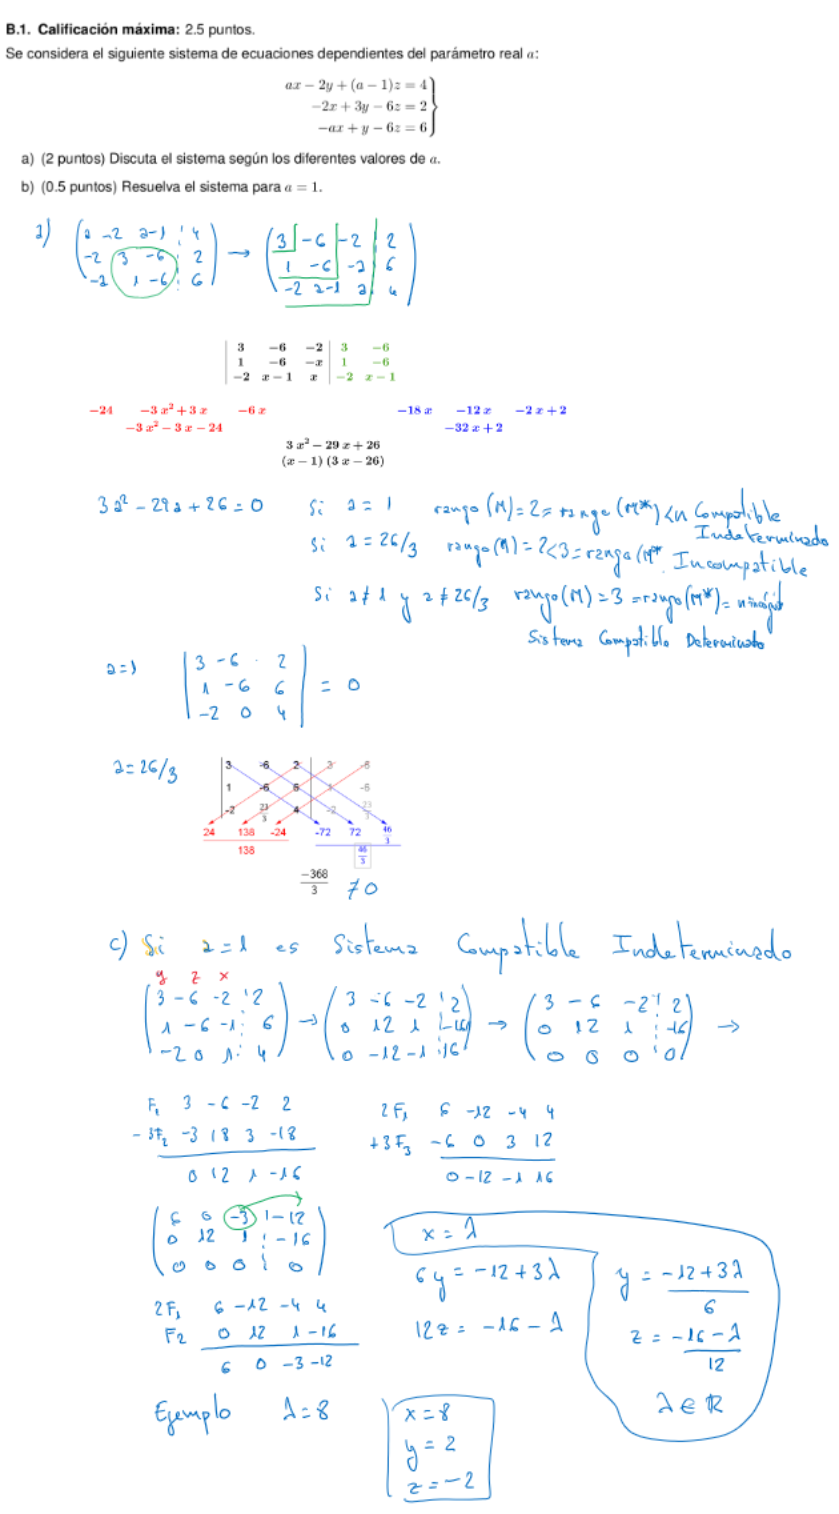 B.1. Calificación máxima: 2.5 puntos.
Se considera el siguiente sistema de ecuaciones dependientes del parámetro real a:
ax − 2y + (a − 1)z = 4
−2x + 3y − 6z = 2
−ax + y − 6z = 6
a) (2 puntos) Discuta el sistema según los diferentes valores de a.
b) (0.5 puntos) Resuelva el sistema para a = 1.
a) ( a -2 a-1 ¦ 4 ) → ( 3 -6 -2 | 2 )
( -2 3 -6 ¦ 2 ) ( 1 -6 -a | 6 )
( -a 1 -6 ¦ 6 ) ( -2 a-1 a | 4 )
| 3 −6 −2 | 3 −6
| 1 −6 −x | 1 −6
| −2 x − 1 x | −2 x − 1
−24 −3 x² + 3 x −6 x −18 x −12 x −2 x + 2
−3 x² − 3 x − 24 −32 x + 2
3 x² − 29 x + 26
(x − 1) (3 x − 26)
3a² - 29a + 26 = 0 Si a = 1 rango (M) = 2 = rango (M*) < n Compatible Indeterminado
Si a = 26/3 rango (M) = 2 < 3 = rango (M* Incompatible
Si a ≠ 1 y a ≠ 26/3 rango (M) = 3 = rango (M*) = nincógnit
Sistema Compatible Determinado
a=1 | 3 -6 2 |
| 1 -6 6 | = 0
| -2 0 4 |
a = 26/3
3 -6 2 3 -6
1 -6 6 1 -6
-2 23/3 4 -2 23/3
24 138 -24 -72 72 46/3
138 46/3
-368/3 ≠ 0
c) Si a = 1 es Sistema Compatible Indeterminado
y z x
( 3 -6 -2 ¦ 2 ) → ( 3 -6 -2 ¦ 2 ) → ( 3 -6 -2 ¦ 2 ) →
( 1 -6 -1 ¦ 6 ) ( 0 12 1 ¦ -16 ) ( 0 12 1 ¦ -16 )
( -2 0 1 ¦ 4 ) ( 0 -12 -1 ¦ 16 ) ( 0 0 0 ¦ 0 )
F₁ 3 -6 -2 2 2F₁ 6 -12 -4 4
- 3F₂ -3 18 3 -18 +3F₃ -6 0 3 12
0 12 1 -16 0 -12 -1 16
( 6 0 -3 ¦ -12 )
( 0 12 1 ¦ -16 )
( 0 0 0 ¦ 0 )
2F₁ 6 -12 -4 4
F₂ 0 12 1 -16
6 0 -3 -12
x = λ
6y = -12 + 3λ
12z = -16 - λ
y = (-12 + 3λ)/6
z = (-16 - λ)/12
λ ∈ ℝ
Ejemplo λ = 8
x = 8
y = 2
z = -2